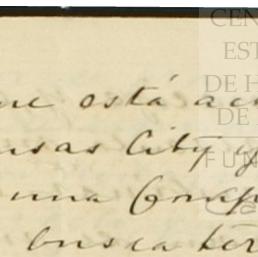 que está ac
nsas City y
una Comp
busca ter
CEN
EST
DE H
DE
FUN